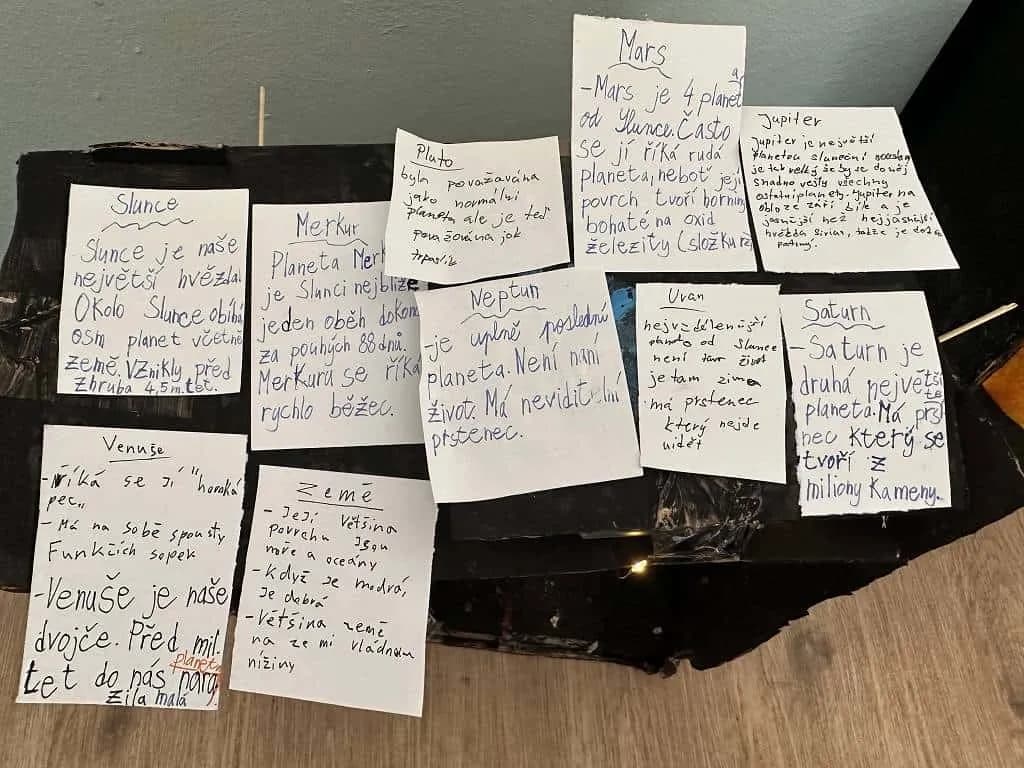 Slunce
Slunce je naše
největší hvězda.
Okolo Slunce obíhá
osm planet včetně
země. Vznikly před
zhruba 4,5 m. let.
Merkur
Planeta Merk
je Slunci nejblíže
jeden oběh dokon
za pouhých 88 dnů.
Merkuru se říká
rychlo běžec.
Pluto
byla považavána
jako normální
planeta ale je teď
považována jak
trpaslík
Mars
-Mars je 4 planeta
od Slunce. Často
se jí říká rudá
planeta, neboť její
povrch tvoří horniny
bohaté na oxid
železitý (složku
Jupiter
Jupiter je největší
planetou sluneční
je tak velký že by se do něj
snadno vešly všechny
ostatní planety. Jupiter na
obloze září bíle a je
jasnější než nejjasnější
hvězda Sirius, takže je dobře
Neptun
-je uplně poslední
planeta. Není naní
život. Má neviditelní
prstenec.
Uran
nejvzdálenější
planeta od slunce
není tam život
je tam zima
má prstenec
který nejde
vidět
Saturn
-Saturn je
druhá největší
planeta. Má prste
nec který se
tvoří z
miliony Kameny.
Venuše
-Říká se Jí "horoká
pec"
-Má na sobě spousty
Funkčích sopek
-Venuše je naše
dvojče. Před mil.
let do nás nara-
zila malá planeta.
Země
-Její většina
povrchu Jsou
moře a oceány
-Když Je modrá,
Je dobrá
-Většina země
na ze mi vládnou
nížiny